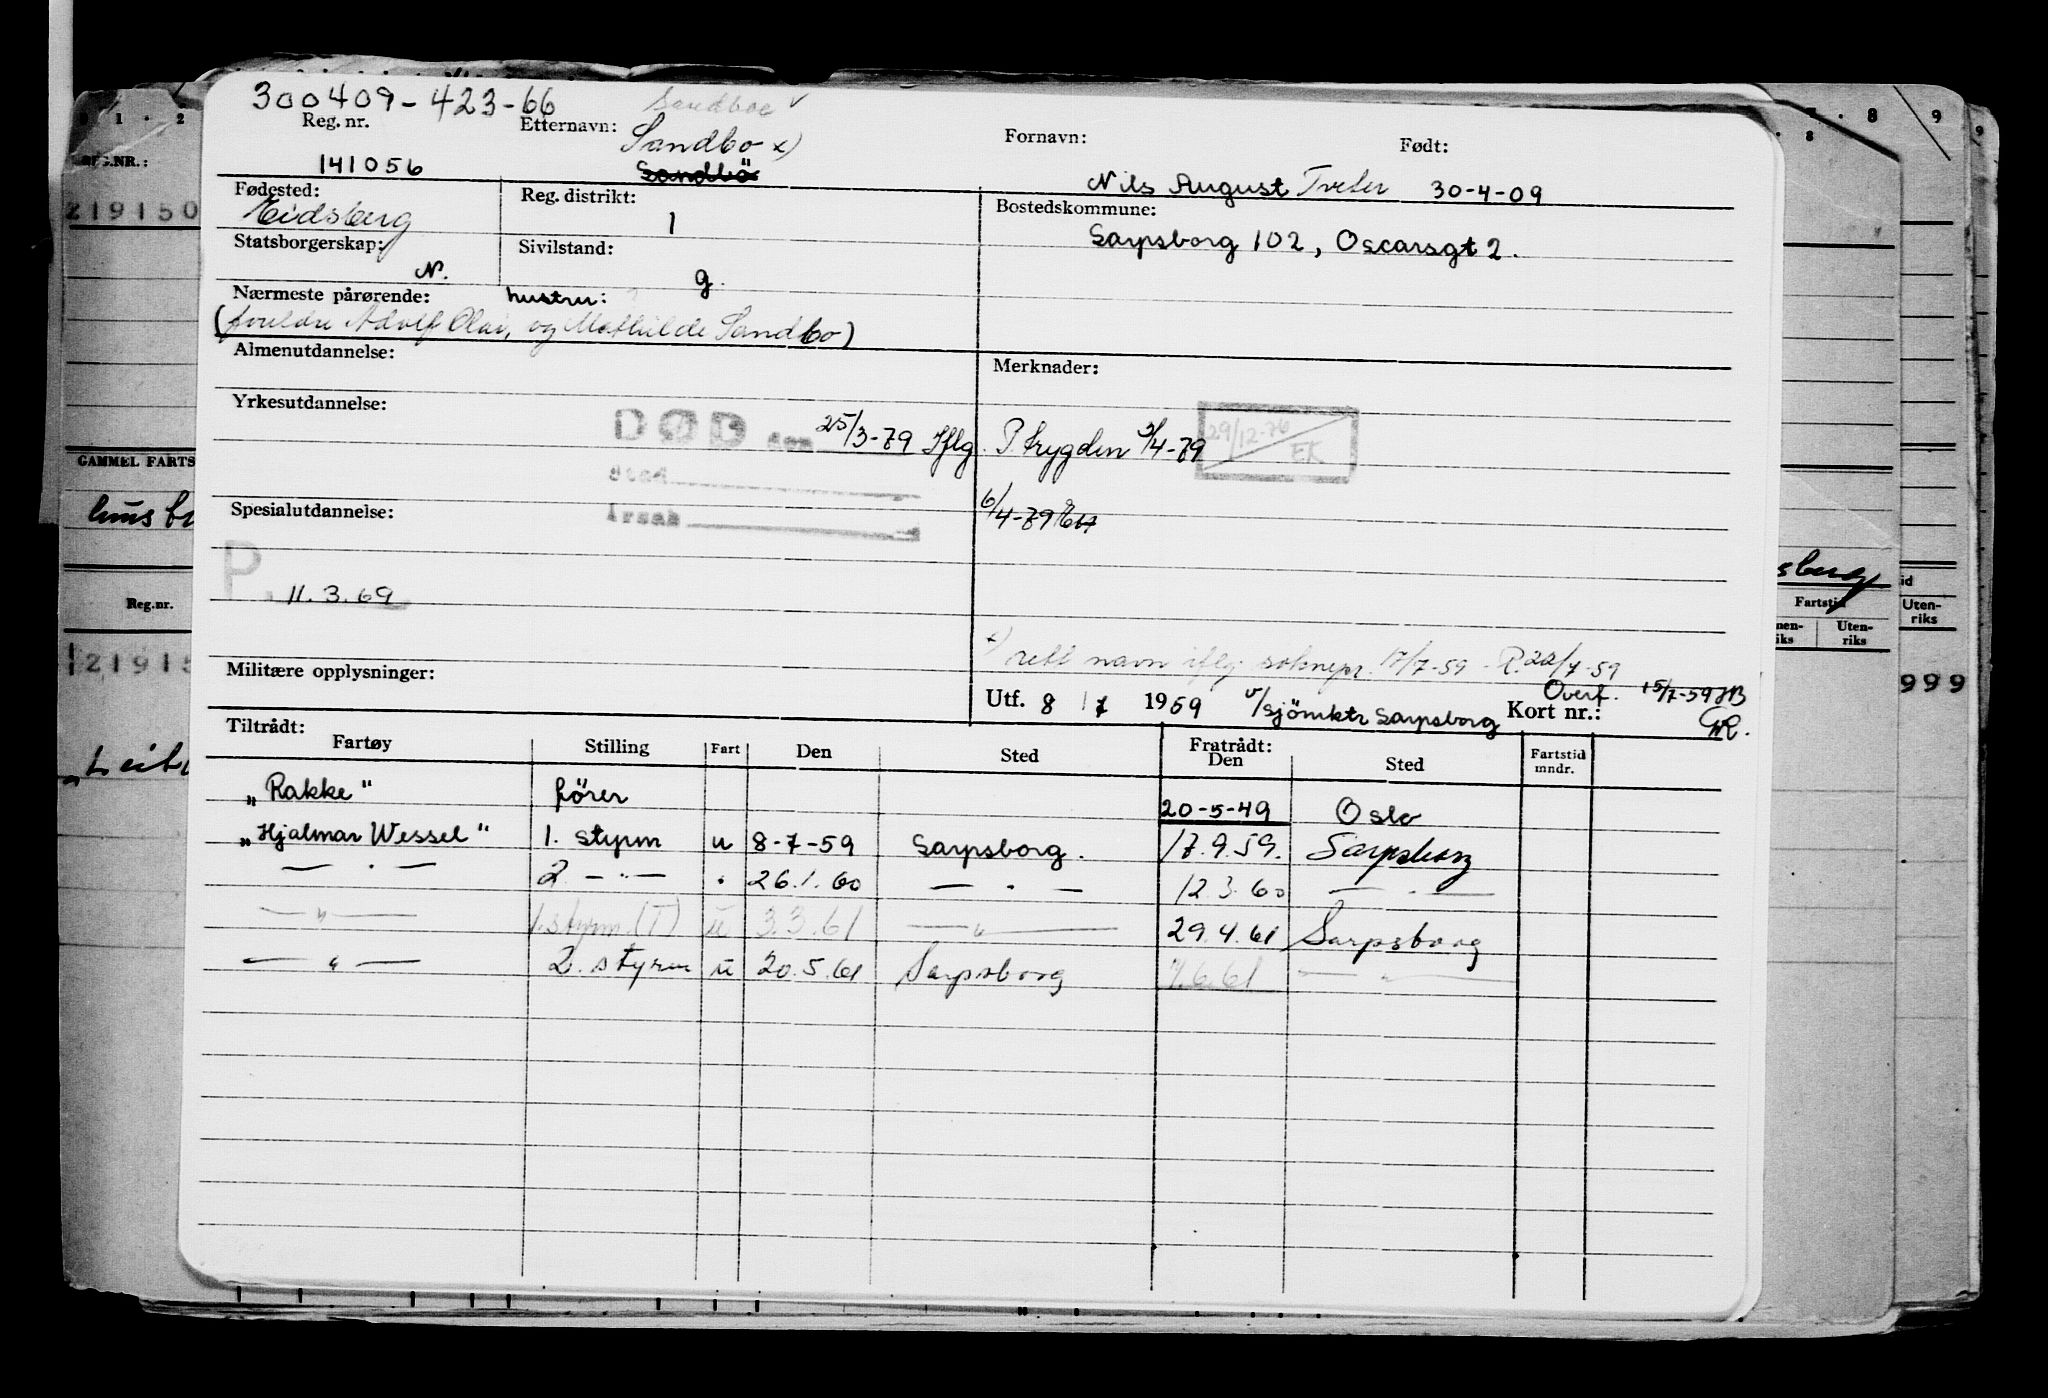 300409-423-66 Sandboe v
Reg. nr. Etternavn: Sandbo x) Fornavn: Født:
141056 Sandbö Nils August Tveter 30-4-09
Fødested: Reg. distrikt: Bostedskommune:
Eidsberg 1 Sarpsborg 102, Oscarsgt 2.
Statsborgerskap: Sivilstand:
N. g.
Nærmeste pårørende: hustru:
(foreldre Adolf Olai, og Mathilde Sandbo)
Almenutdannelse: Merknader:
Yrkesutdannelse:
DØD den 25/3-79 Iflg. P.trygden 3/4-79 29/12-76 EK
Sted
Årsak 6/4-79
Spesialutdannelse:
P. 11.3.69
x) rett navn iflg. 17/7-59 - R. 22/7-59
Militære opplysninger:
Overf. 15/7-59 HB
Utf. 8 / 7 1959 v/sjömktr Sarpsborg Kort nr.:
Tiltrådt: Fratrådt:
Fartøy Stilling Fart Den Sted Den Sted Fartstid mndr.
„Rakke" förer 20-5-49 Oslo
„Hjalmar Wessel" 1. styrm u 8-7-59 Sarpsborg. 17.9.59. Sarpsborg
— . — 2. — " — . 26.1.60 — . — 12.3.60 — . —
— " — 1. styrm (T) u 3.3.61 — " — 29.4.61 Sarpsborg
— " — 2. styrm u 20.5.61 Sarpsborg 7.6.61 — " —
REG.NR.:
219150
GAMMEL FARTS
Reg.nr.
121915
8 9 9
8
sberg
id
Fartstid Uten-
riks
nen- Uten-
iks riks
999